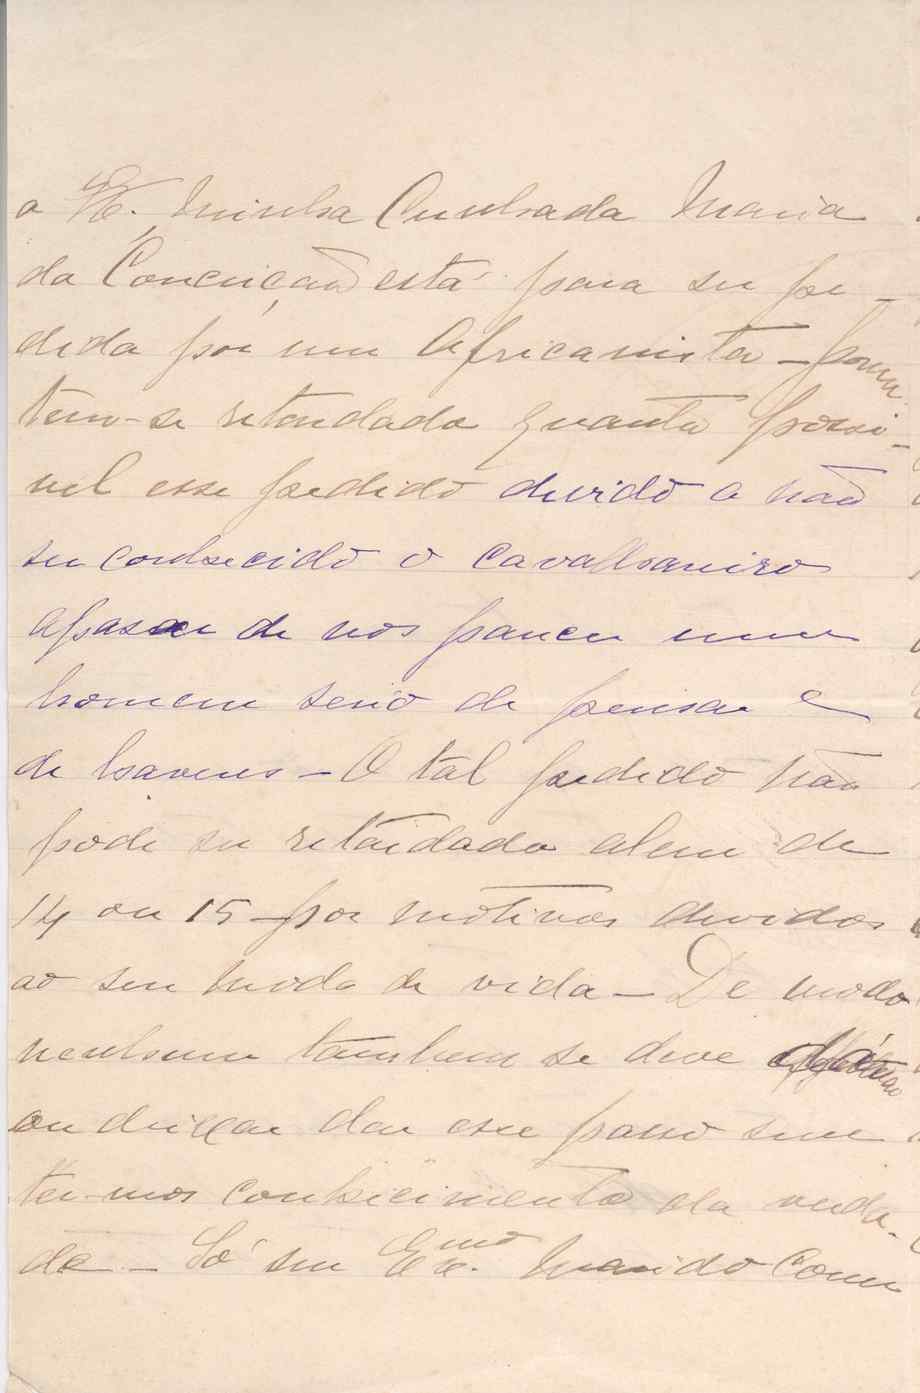 a V. Ex.ª Minha Cunhada Maria
da Conceição está para ser pe-
dida por um Africanista – porem
tem-se retardado quanto possi-
vel esse pedido devido a não
ser conhecido o cavalheiro
apasar de nos parecer um
homem serio de pensar e
de haveres – O tal pedido não
pode ser retardado alem de
14 ou 15 – por motivos devidos
ao seu modo de vida – De modo
nenhum tambem se deve
ou deixar dar esse passo sem
ter-mos conhecimento da verda-
de – Só seu Exmo. Marido com